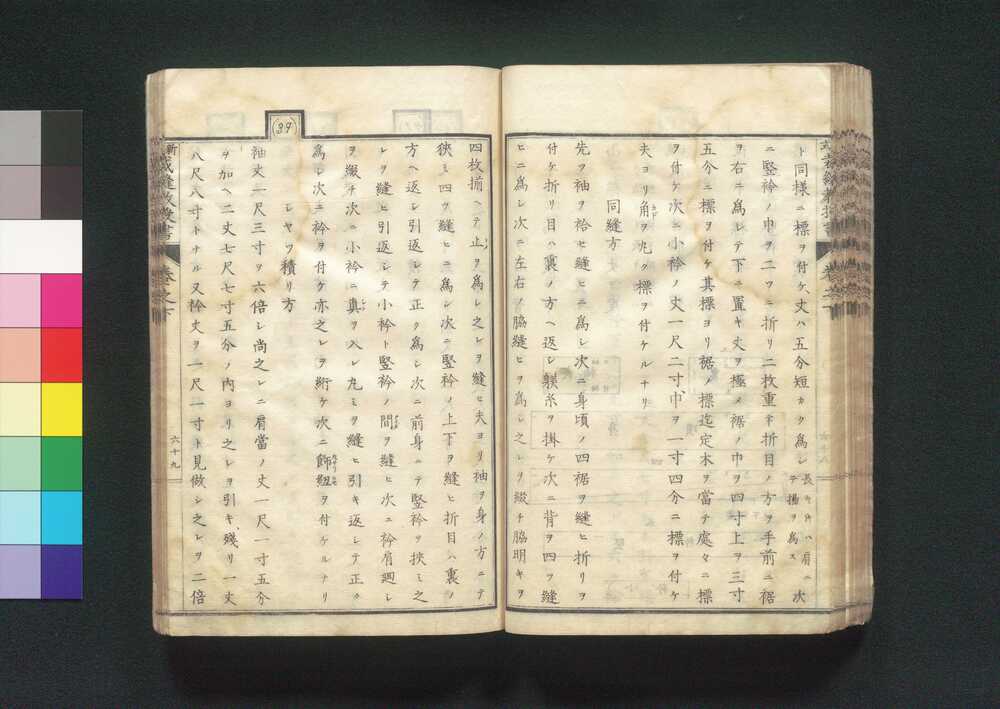 ト同様ニ標ヲ付ケ丈ハ五分短カク為シ長キ時ハ肩ニテ揚ヲ為ス次
ニ竪衿ノ巾ヲ二ツニ折リ二枚重ネ折目ノ方ヲ手前ニ裾
ヲ右ニ為シテ下ニ置キ丈ヲ極メ裾ノ巾ヲ四寸上ヲ三寸
五分ニ標ヲ付ケ其標ヨリ裾ノ標迄定木ヲ當テ處々ニ標
ヲ付ケ次ニ小衿ノ丈一尺二寸巾ヲ一寸四分ニ標ヲ付ケ
夫ヨリ角ヲ丸ク標ヲ付ケルナリ
同縫方
先ヲ袖ヲ袷セ縫ヒニ為シ次ニ身頃ノ四裾ヲ縫ヒ折リヲ
付ケ折リ目ハ裏ノ方ヘ返シ躾糸ヲ掛ケ次ニ背ヲ四ツ縫
ヒニ為シ次ニ左右ノ脇縫ヒヲ為シ之レヲ綴チ脇明キヲ
四枚揃ヘテ止ヲ為シ之レヲ縫ヒ夫ヨリ袖ヲ身ノ方ニテ
狹ミ四ツ縫ヒニ為シ次ニ竪衿ノ上下ヲ縫ヒ折目ハ裏ノ
方ヘ返シ引返シテ正ク為シ次ニ前身ニテ竪衿ヲ挾ミ之
レヲ縫ヒ引返シテ小衿ト竪衿ノ間ヲ縫ヒ次ニ衿肩廻シ
ヲ綴チ次ニ小衿ニ真ヲ入レ丸ミヲ縫ヒ引キ返シテ正ク
為シ次ニ衿ヲ付ケ亦之レヲ絎ケ次ニ飾紐ヲ付ケルナリ
(39)
シヤツ積リ方
袖丈一尺三寸ヲ六倍シ尚之レニ肩當ノ丈一尺一寸五分
ヲ加ヘ二丈七尺七寸五分ノ内ヨリ之レヲ引キ残リ一丈
八尺八寸トナル又衿丈ヲ一尺一寸ト見做シ之レヲ二倍
六十九
裁縫教授書 卷之下